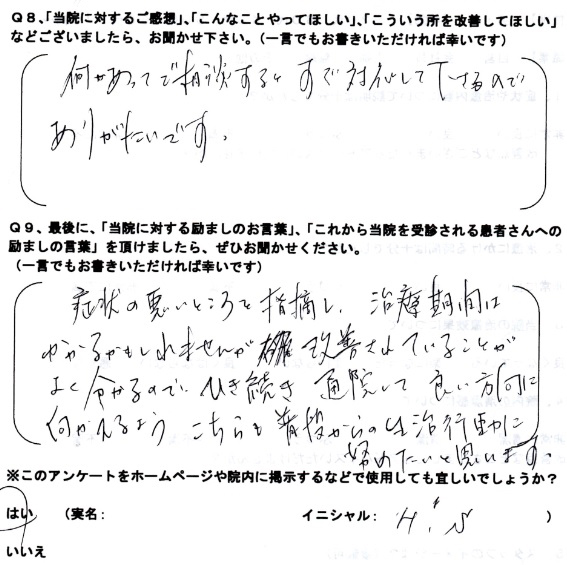 Q8、「当院に対するご感想」、「こんなことやってほしい」、「こういう所を改善してほしい」
などございましたら、お聞かせ下さい。（一言でもお書きいただければ幸いです）
何かあってご相談すると すぐ対応して下さるので
ありがたいです。
Q9、最後に、「当院に対する励ましのお言葉」、「これから当院を受診される患者さんへの
励ましの言葉」を頂けましたら、ぜひお聞かせください。
（一言でもお書きいただければ幸いです）
症状の悪いところを指摘し、治療期間は
かかるかもしれませんが 改善されていることが
よく分かるので、ひき続き 通院して 良い方向に
向かえるよう こちらも普段からの生活行動に
努めたいと思います。
※このアンケートをホームページや院内に掲示するなどで使用しても宜しいでしょうか？
はい （実名： イニシャル： H.S ）
いいえ